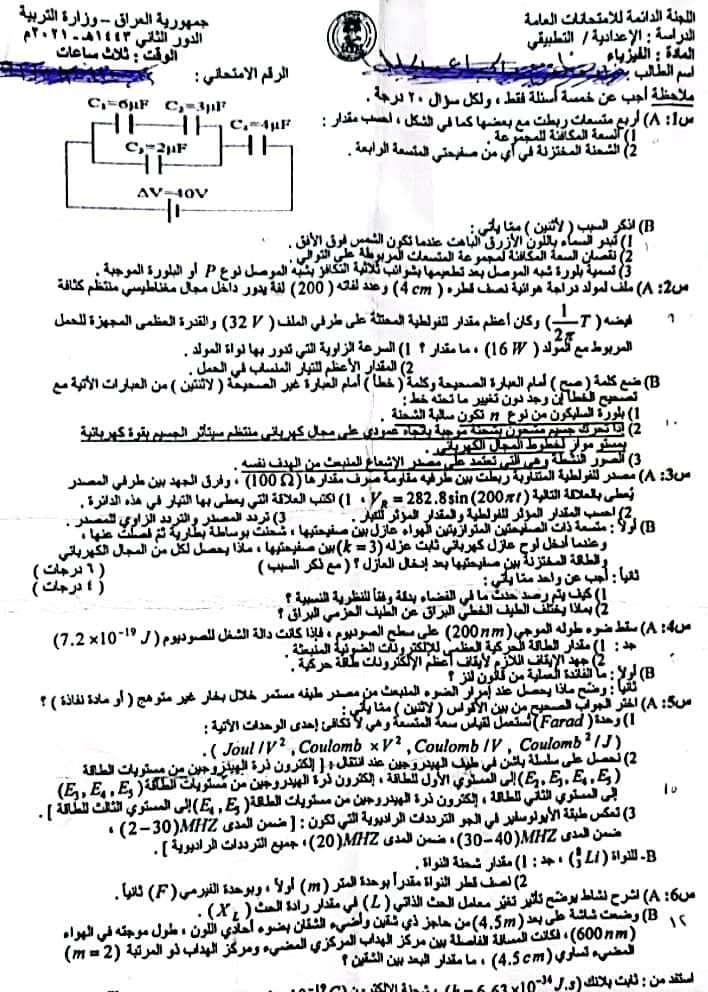 جمهورية العراق – وزارة التربية
الدور الثاني ١٤٤٣هـ - ٢٠٢١م
الوقت : ثلاث ساعات
الرقم الامتحاني :
اللجنة الدائمة للامتحانات العامة
الدراسة : الإعدادية / التطبيقي
المادة : الفيزياء
اسم الطالب :
ملاحظة أجب عن خمسة أسئلة فقط ، ولكل سؤال ٢٠ درجة .
س1: A) أربع متسعات ربطت مع بعضها كما في الشكل ، احسب مقدار :
1) السعة المكافئة للمجموعة .
2) الشحنة المختزنة في أي من صفيحتي المتسعة الرابعة .
C₁=6μF C₂=3μF
C₄=4μF
C₃=2μF
ΔV=40V
B) اذكر السبب ( لاثنين ) مما يأتي :
1) تبدو السماء باللون الأزرق الباهت عندما تكون الشمس فوق الأفق .
2) نقصان السعة المكافئة لمجموعة المتسعات المربوطة على التوالي .
3) تسمية بلورة شبه الموصل بعد تطعيمها بشوائب ثلاثية التكافؤ بشبه الموصل نوع P أو البلورة الموجبة .
س2: A) ملف لمولد دراجة هوائية نصف قطره (4 cm) وعدد لفاته (200) لفة يدور داخل مجال مغناطيسي منتظم كثافة
فيضه (1/2π T) وكان أعظم مقدار للفولطية المحتثة على طرفي الملف (32 V) والقدرة العظمى المجهزة للحمل
المربوط مع المولد (16 W) ، ما مقدار ؟ 1) السرعة الزاوية التي تدور بها نواة المولد .
2) المقدار الأعظم للتيار المنساب في الحمل .
B) ضع كلمة ( صح ) أمام العبارة الصحيحة وكلمة ( خطأ ) أمام العبارة غير الصحيحة ( لاثنتين ) من العبارات الآتية مع
تصحيح الخطأ إن وجد دون تغيير ما تحته خط :
1) بلورة السليكون من نوع n تكون سالبة الشحنة .
2) إذا تحرك جسيم مشحون بشحنة موجبة باتجاه عمودي على مجال كهربائي منتظم سيتأثر الجسيم بقوة كهربائية
بمستو مواز لخطوط المجال الكهربائي .
3) الصور النشطة وهي التي تعتمد على مصدر الإشعاع المنبعث من الهدف نفسه .
س3: A) مصدر للفولطية المتناوبة ربطت بين طرفيه مقاومة صرف مقدارها (100 Ω) ، وفرق الجهد بين طرفي المصدر
يُعطى بالعلاقة التالية V_R = 282.8 sin(200πt) ، 1) اكتب العلاقة التي يعطى بها التيار في هذه الدائرة .
2) احسب المقدار المؤثر للفولطية والمقدار المؤثر للتيار . 3) تردد المصدر والتردد الزاوي للمصدر .
B) أولاً : متسعة ذات الصفيحتين المتوازيتين الهواء عازل بين صفيحتيها ، شحنت بوساطة بطارية ثم فصلت عنها ،
وعندما أدخل لوح عازل كهربائي ثابت عزله (k = 3) بين صفيحتيها ، ماذا يحصل لكل من المجال الكهربائي
والطاقة المختزنة بين صفيحتيها بعد إدخال العازل ؟ ( مع ذكر السبب ) ( ٦ درجات )
ثانياً : أجب عن واحد مما يأتي : ( ٤ درجات )
1) كيف يتم رصد حدث ما في الفضاء بدقة وفقاً للنظرية النسبية ؟
2) بماذا يختلف الطيف الخطي البراق عن الطيف الحزمي البراق ؟
س4: A) سقط ضوء طوله الموجي (200 nm) على سطح الصوديوم ، فإذا كانت دالة الشغل للصوديوم (7.2×10⁻¹⁹ J)
جد : 1) مقدار الطاقة الحركية العظمى للإلكترونات الضوئية المنبعثة .
2) جهد الإيقاف اللازم لأيقاف أعظم الإلكترونات طاقة حركية .
B) أولاً : ما الفائدة العملية من قانون لنز ؟
ثانياً : وضح ماذا يحصل عند إمرار الضوء المنبعث من مصدر طيفه مستمر خلال بخار غير متوهج ( أو مادة نفاذة ) ؟
س5: A) اختر الجواب الصحيح من بين الأقواس ( لاثنتين ) مما يأتي :
1) وحدة (Farad) تستعمل لقياس سعة المتسعة وهي لا تكافئ إحدى الوحدات الآتية :
( Joul/V² , Coulomb ×V² , Coulomb/V , Coulomb²/J ) .
2) تحصل على سلسلة باشن في طيف الهيدروجين عند انتقال : [ إلكترون ذرة الهيدروجين من مستويات الطاقة
(E₂ , E₃ , E₄ , E₅) إلى المستوي الأول للطاقة ، إلكترون ذرة الهيدروجين من مستويات الطاقة (E₃ , E₄ , E₅)
إلى المستوي الثاني للطاقة ، إلكترون ذرة الهيدروجين من مستويات الطاقة (E₄ , E₅) إلى المستوي الثالث للطاقة ] .
3) تعكس طبقة الأيونوسفير في الجو الترددات الراديوية التي تكون : [ ضمن المدى (2–30) MHZ ،
ضمن المدى (30–40) MHZ ، ضمن المدى (20) MHZ ، جميع الترددات الراديوية ] .
B- للنواة (⁸₃Li) ، جد : 1) مقدار شحنة النواة .
2) نصف قطر النواة مقدراً بوحدة المتر (m) أولاً ، وبوحدة الفيرمي (F) ثانياً .
س6: A) اشرح نشاط يوضح تأثير تغير معامل الحث الذاتي (L) في مقدار رادة الحث (X_L) .
B) وضعت شاشة على بعد (4.5m) من حاجز ذي شقين وأضيء الشقان بضوء أحادي اللون ، طول موجته في الهواء
(600 nm) ، فكانت المسافة الفاصلة بين مركز الهداب المركزي المضيء ومركز الهداب ذو المرتبة (m = 2)
المضيء تساوي (4.5 cm) ، ما مقدار البعد بين الشقين ؟
استفد من : ثابت بلانك (h = 6.63×10⁻³⁴ J.s) ، شحنة الإلكترون